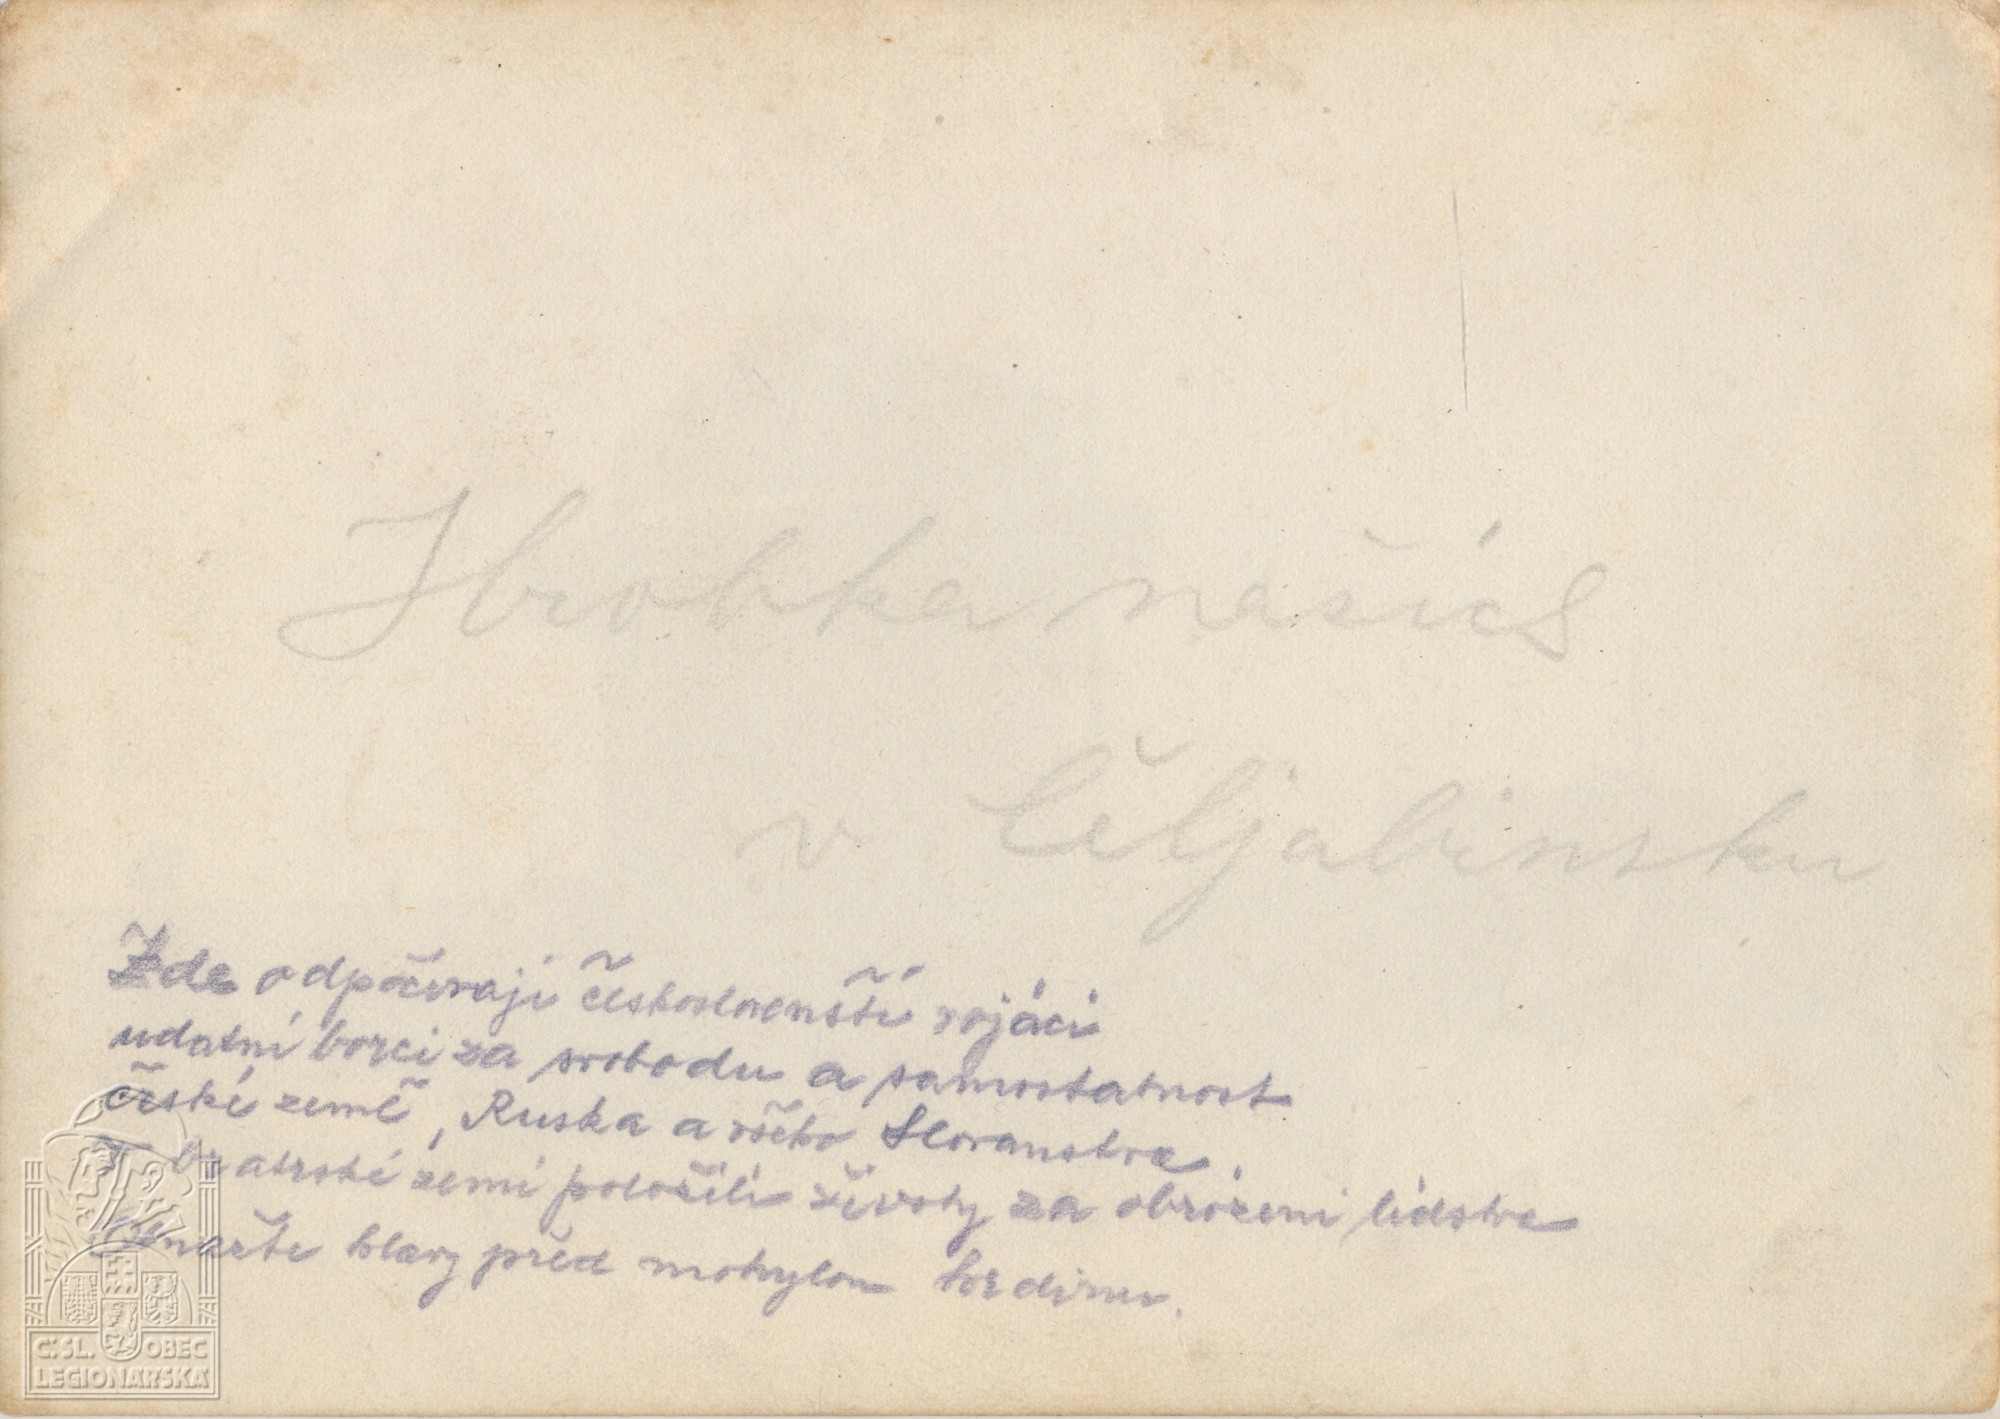 Hrobka našich
v Čeljabinsku
Zde odpočívají českoslovenští vojáci
udatní borci za svobodu a samostatnost
české země, Ruska a všeho Slovanstva.
V bratrské zemi položili životy za obrození lidstva
hlavy před mohylou hrdinů.
Č.SL. OBEC
LEGIONÁŘSKÁ